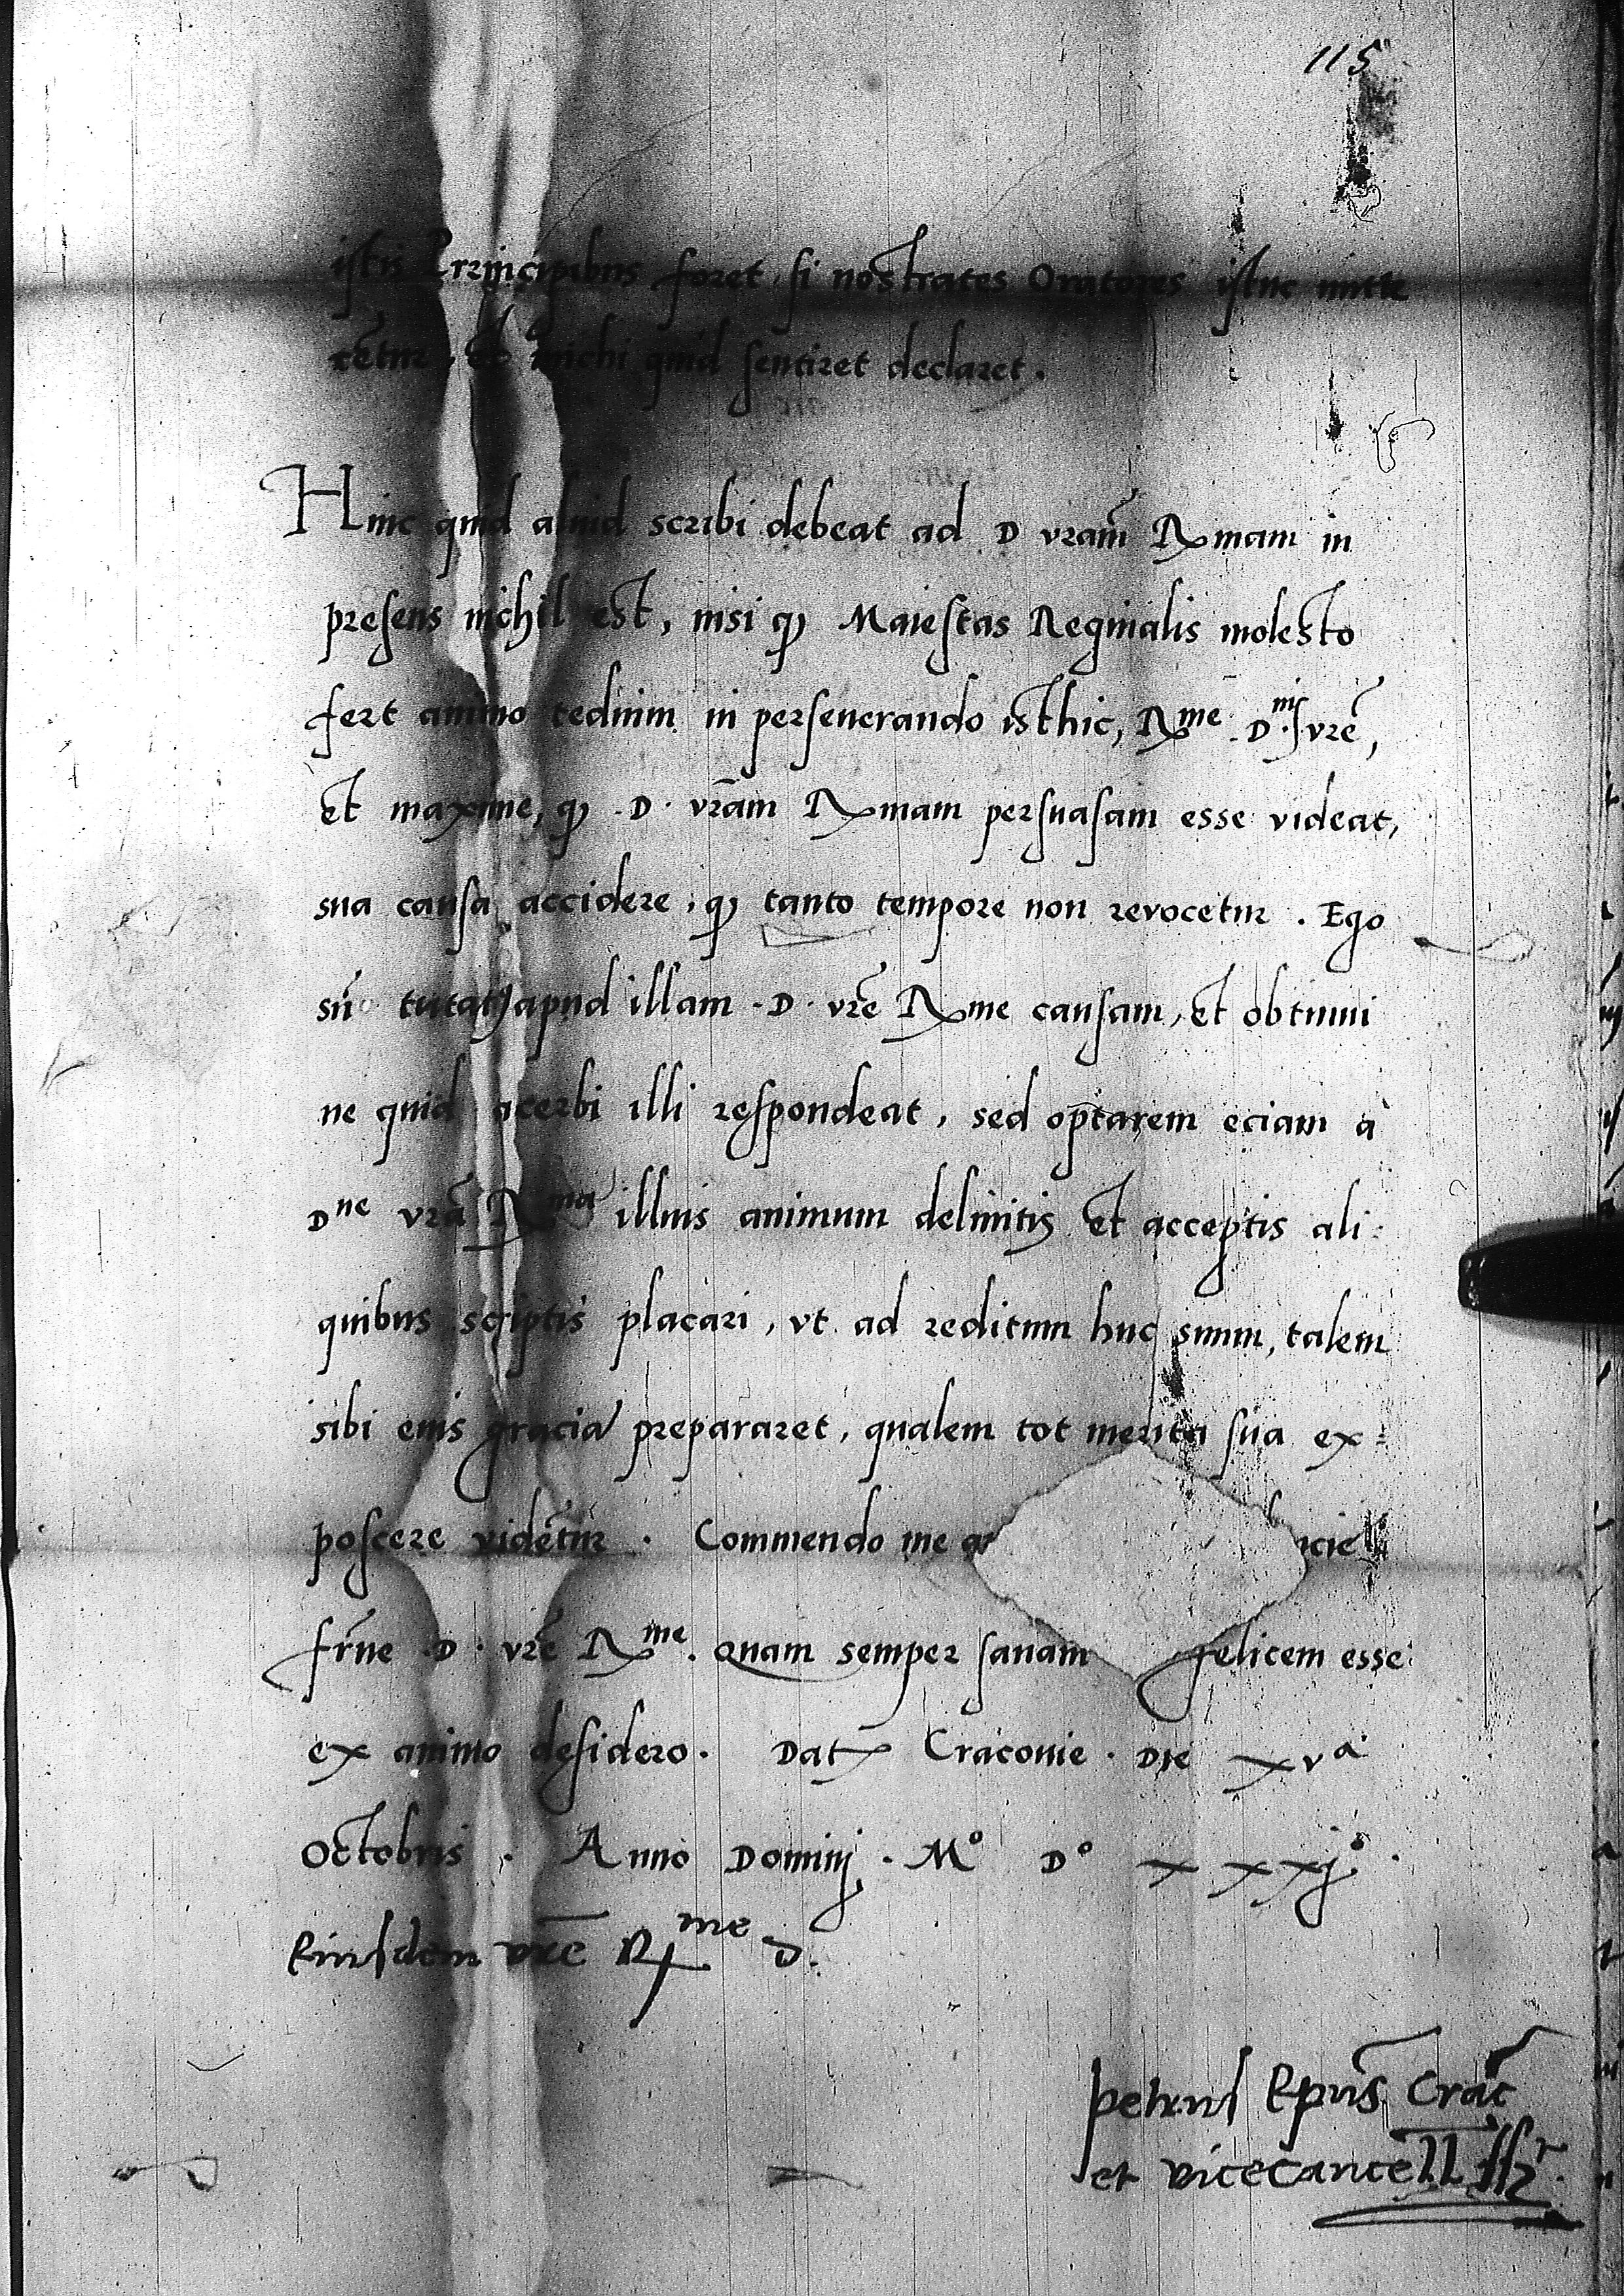 115
istis Principibus foret, si nostrates Oratores istuc mitte
rentur, et michi quid sentiret declaret.
Hinc quid aliud scribi debeat ad D vram̄ Rmam in
presens nichil est, nisi qꝫ Maiestas Reginalis molesto
fert animo tedium in perseuerando isthic, Rme D.nis vrē,
et maxime, qꝫ .D. vrām Rmam persuasam esse videat,
sua causa accidere, qꝫ tanto tempore non revocetur. Ego
sū tutatꝯ apud illam .D. vrē Rme causam, et obtinui
ne quid acerbi illi respondeat, sed optarem eciam a
Dne vrā Rma illius animum delinitis et acceptis ali
quibus scriptis placari, vt ad reditum huc suum, talem
sibi eius gracia prepararet, qualem tot merita sua ex=
poscere vidētur. Commendo me gr
frne .D. vrē Rme. Quam semper sanam felicem esse
ex animo desidero. Dat Cracouie. Die xva
Octobris. Anno Dominj. Mo Do xxxjo.
Eiusdem vrē Rme D.
petrus Epūs Crac̄
et vicecancell